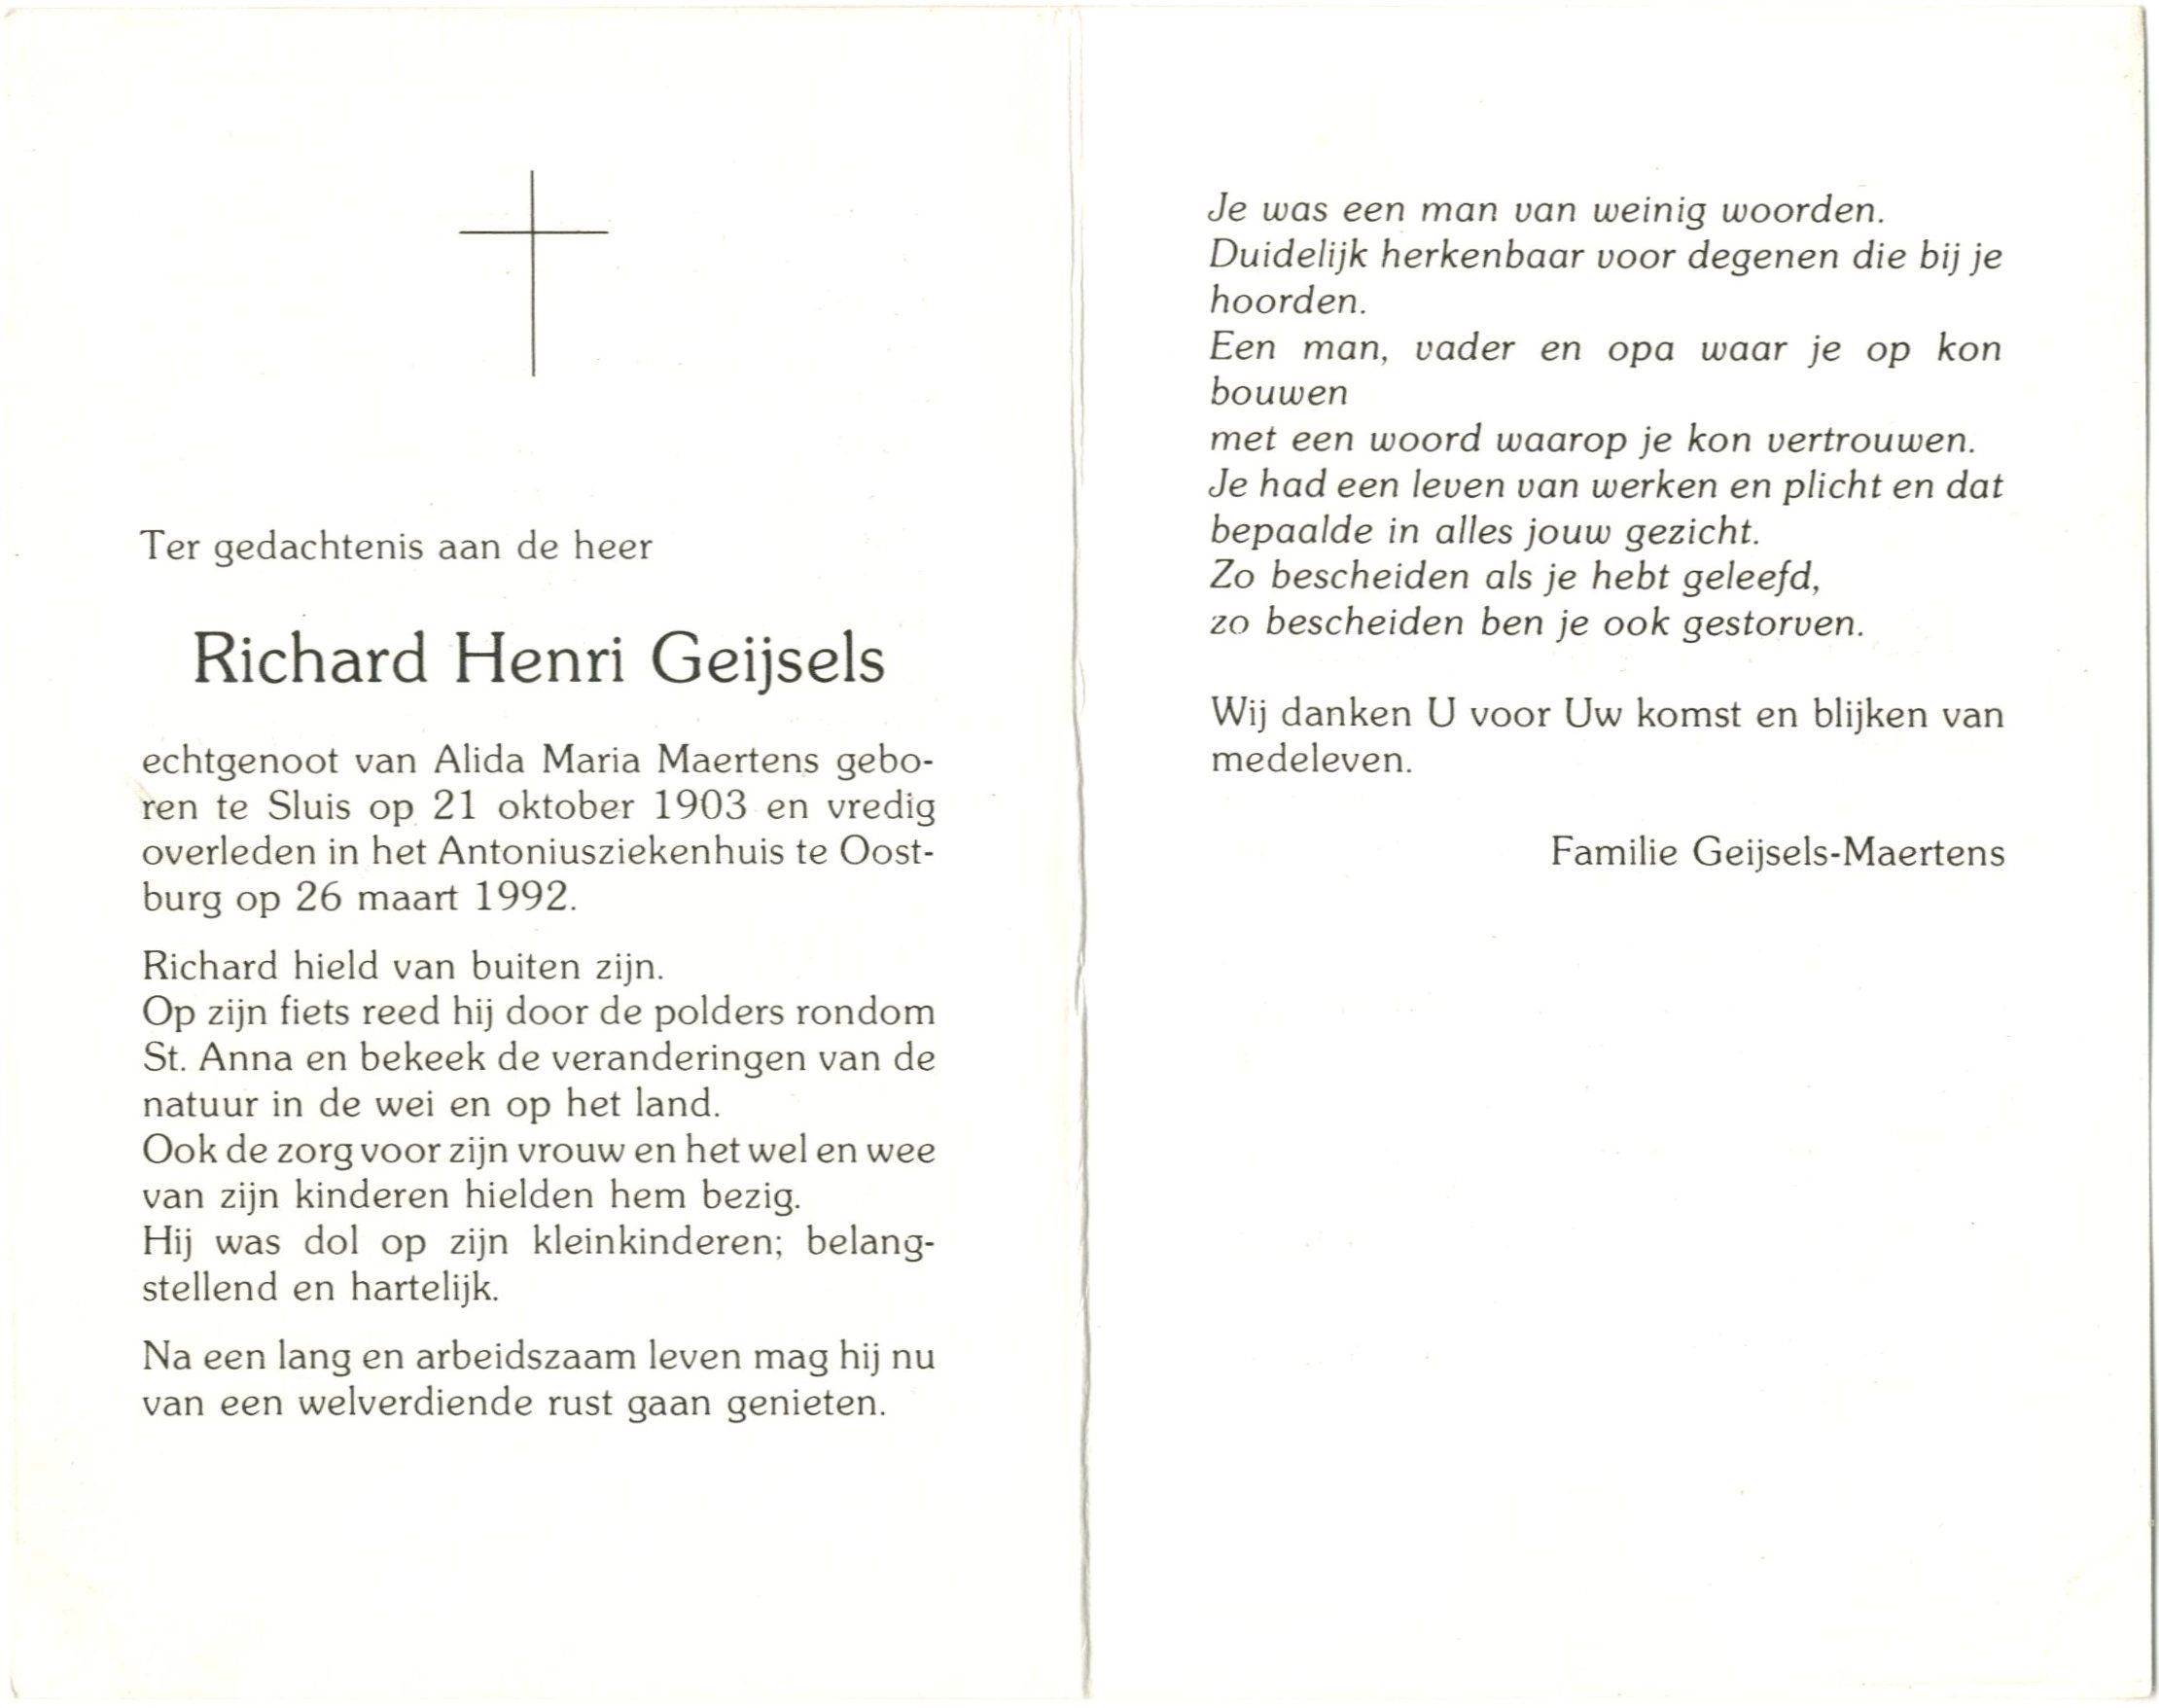 Ter gedachtenis aan de heer
Richard Henri Geijsels
echtgenoot van Alida Maria Maertens gebo-
ren te Sluis op 21 oktober 1903 en vredig
overleden in het Antoniusziekenhuis te Oost-
burg op 26 maart 1992.
Richard hield van buiten zijn.
Op zijn fiets reed hij door de polders rondom
St. Anna en bekeek de veranderingen van de
natuur in de wei en op het land.
Ook de zorg voor zijn vrouw en het wel en wee
van zijn kinderen hielden hem bezig.
Hij was dol op zijn kleinkinderen; belang-
stellend en hartelijk.
Na een lang en arbeidszaam leven mag hij nu
van een welverdiende rust gaan genieten.
Je was een man van weinig woorden.
Duidelijk herkenbaar voor degenen die bij je
hoorden.
Een man, vader en opa waar je op kon
bouwen
met een woord waarop je kon vertrouwen.
Je had een leven van werken en plicht en dat
bepaalde in alles jouw gezicht.
Zo bescheiden als je hebt geleefd,
zo bescheiden ben je ook gestorven.
Wij danken U voor Uw komst en blijken van
medeleven.
Familie Geijsels-Maertens